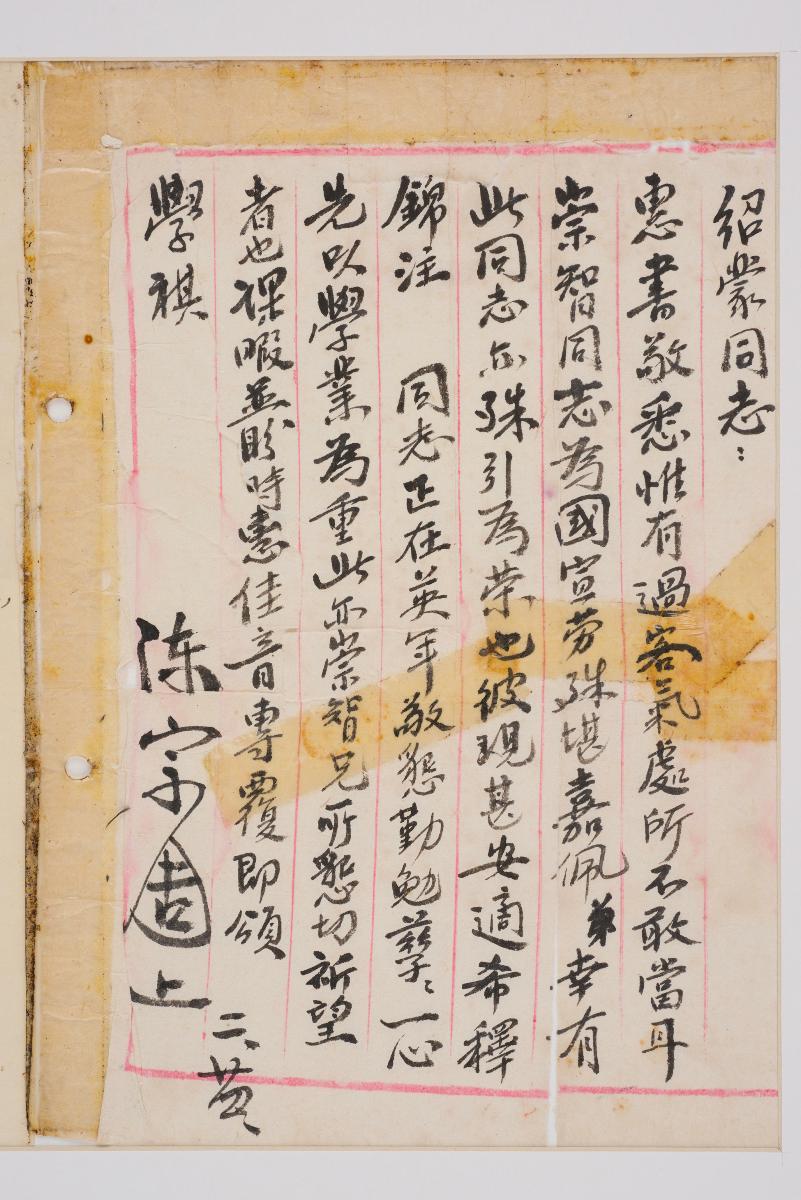 紹蒙同志：
惠書敬悉惟有過客氣處所不敢當耳
崇智同志為國宣勞殊堪嘉佩弟幸有
此同志亦殊引為荣也彼現甚安適希釋
錦注　同志正在英年敬懇勤勉孳〻一心
先以學業為重此亦崇智兄所懇切祈望
者也課暇並盼時惠佳音專覆即頌
學祺
陈宗周上
二、廿